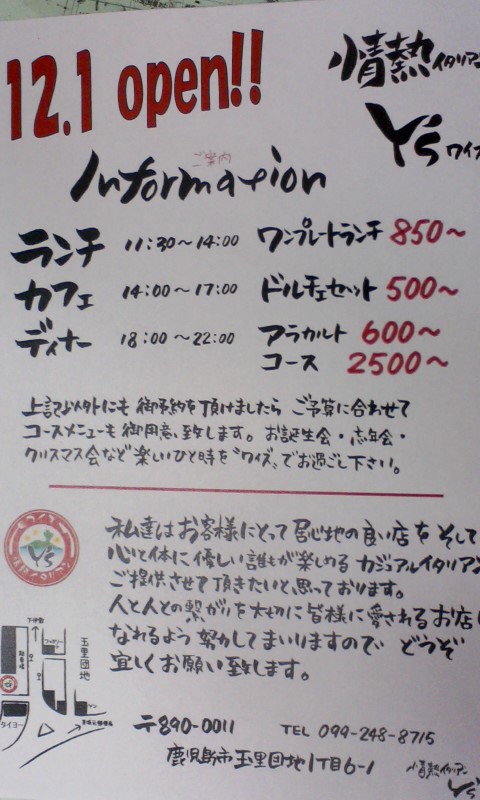 12.1 open!!
情熱イタリアン
Y's ワイズ
ご案内
Information
ランチ 11:30～14:00 ワンプレートランチ 850～
カフェ 14:00～17:00 ドルチェセット 500～
ディナー 18:00～22:00 アラカルト 600～
コース 2500～
上記以外にも御予約を頂けましたら ご予算に合わせて
コースメニューも御用意致します。お誕生会・忘年会・
クリスマス会など楽しいひと時を〝ワイズ〟でお過ごし下さい。
私達はお客様にとって居心地の良い店を そして
心と体に優しい誰もが楽しめる カジュアルイタリアン
ご提供させて頂きたいと思っております。
人と人との繋がりを大切に皆様に愛されるお店に
なれるよう努力してまいりますので どうぞ
宜しくお願い致します。
Y's
玉里団地
タイヨー
〒890-0011 TEL 099-248-8715
鹿児島市玉里団地1丁目6-1
情熱イタリアン
Y's